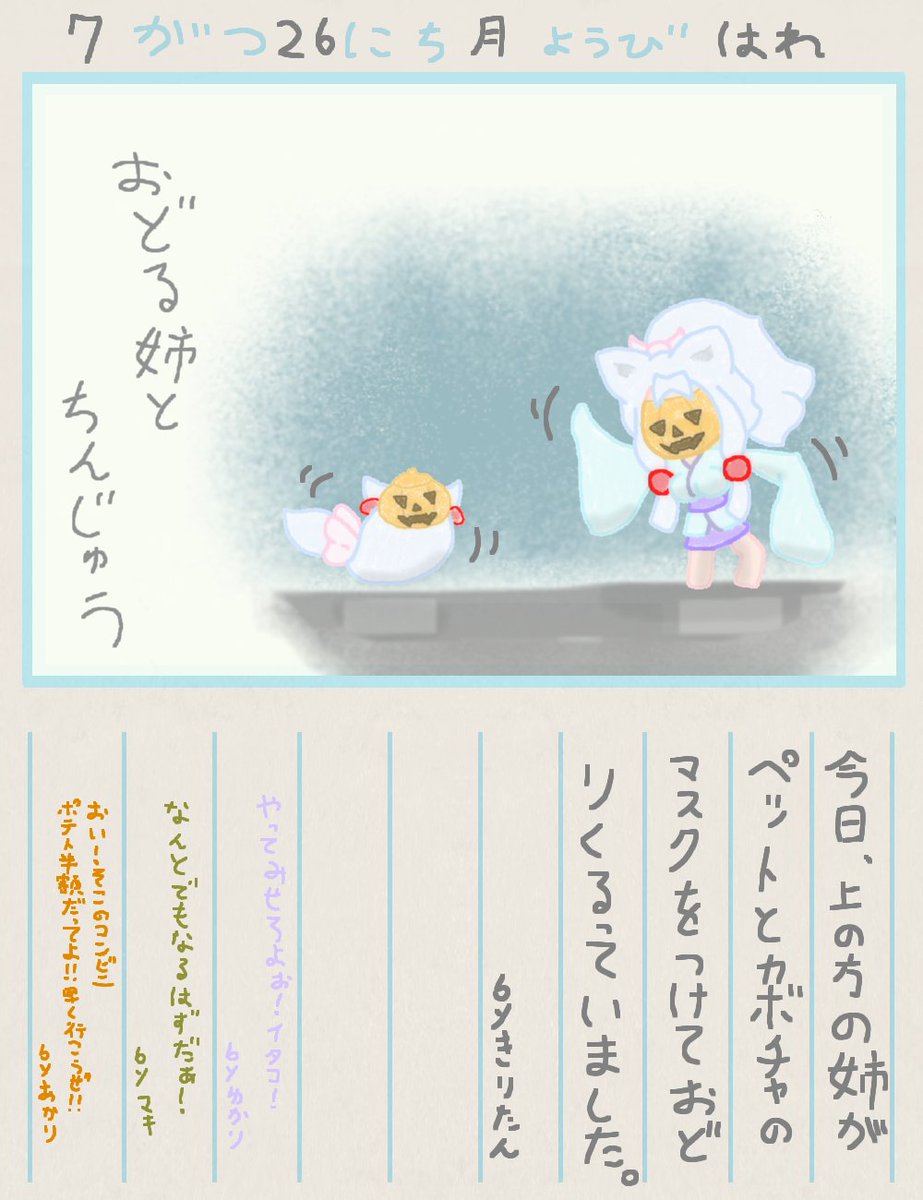 7がつ26にち月ようびはれ
おどる姉と
ちんじゅう
今日、上の方の姉が
ペットとカボチャの
マスクをつけておど
りくるっていました。
by きりたん
やってみせろよぉ!イタコ!
by ゆかり
なんとでもなるはずだぁ!
by マキ
おい〜そこのコンビニ
ポテト半額だってよ!!早く行こうぜ!!
by あかり